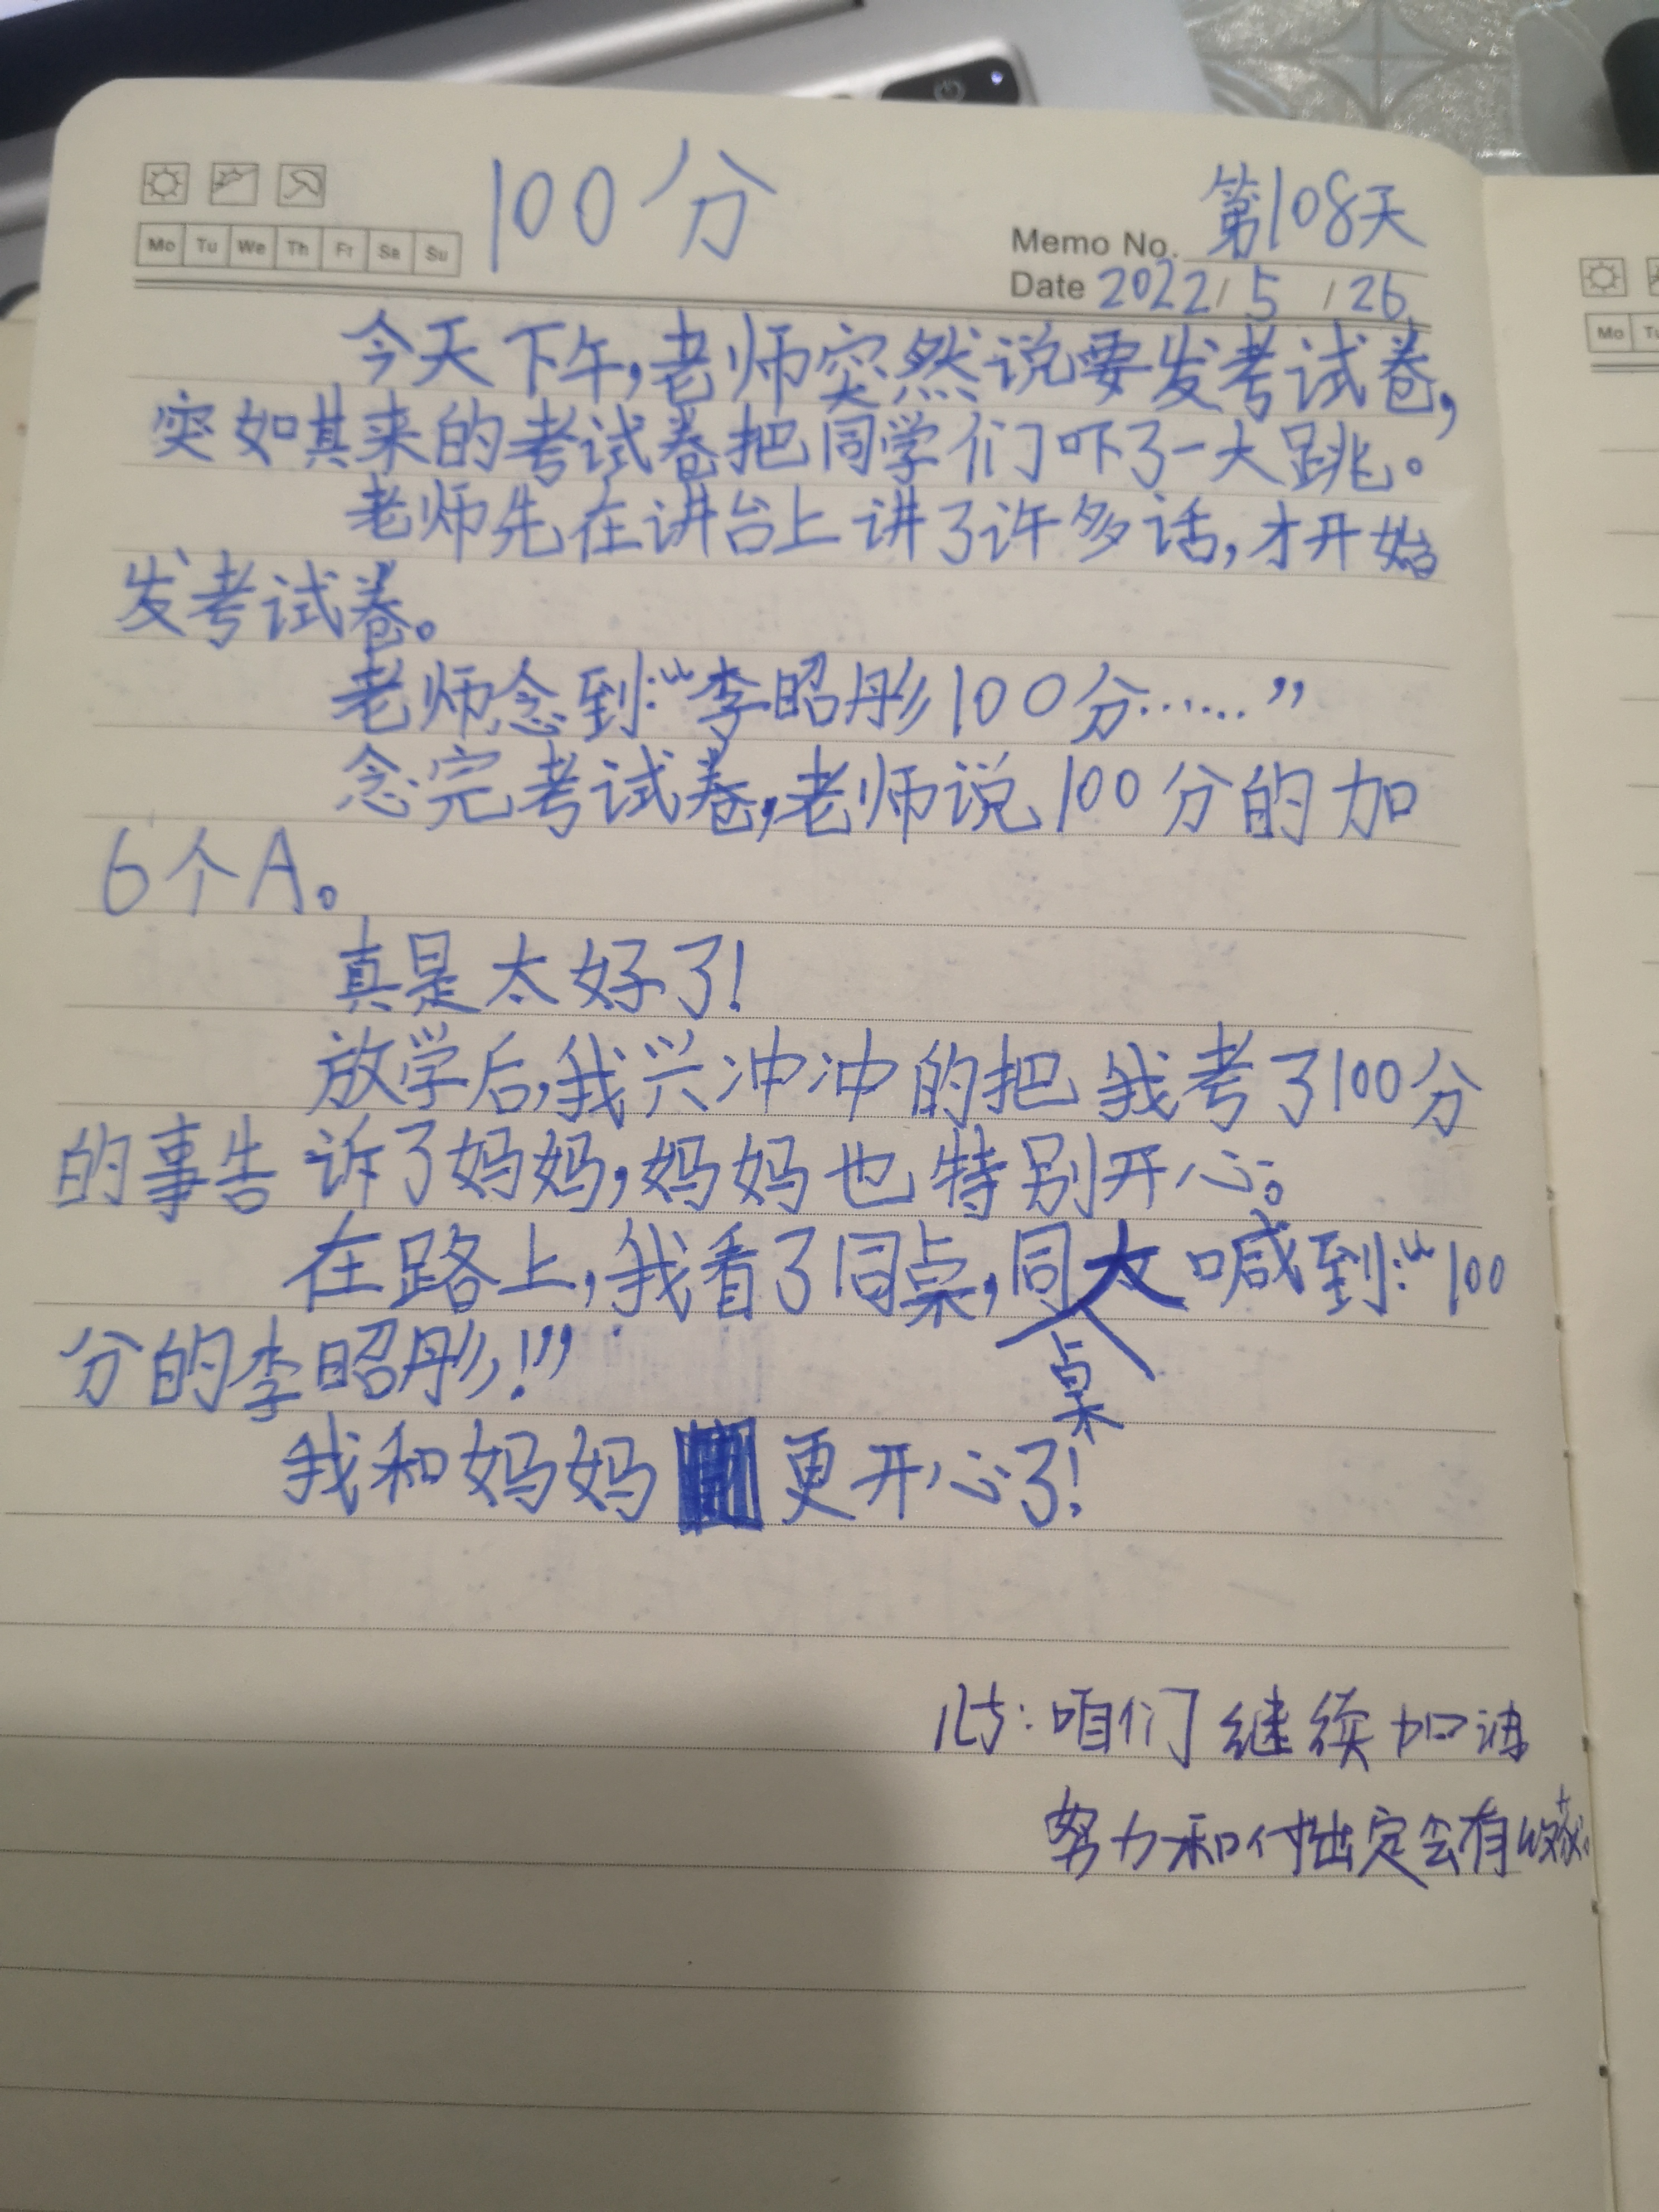 100分
第108天
Mo Tu We Th Fr Sa Su
Memo No.
Date 2022/5/26
今天下午,老师突然说要发考试卷,
突如其来的考试卷把同学们吓了一大跳。
老师先在讲台上讲了许多话,才开始
发考试卷。
老师念到:“李昭彤100分……”
念完考试卷,老师说100分的加
6个A。
真是太好了!
放学后,我兴冲冲的把我考了100分
的事告诉了妈妈,妈妈也特别开心。
在路上,我看了同桌,同桌大喊到:“100
分的李昭彤!”
我和妈妈更开心了!
咱们继续加油
努力和付出定会有收获。
Mo